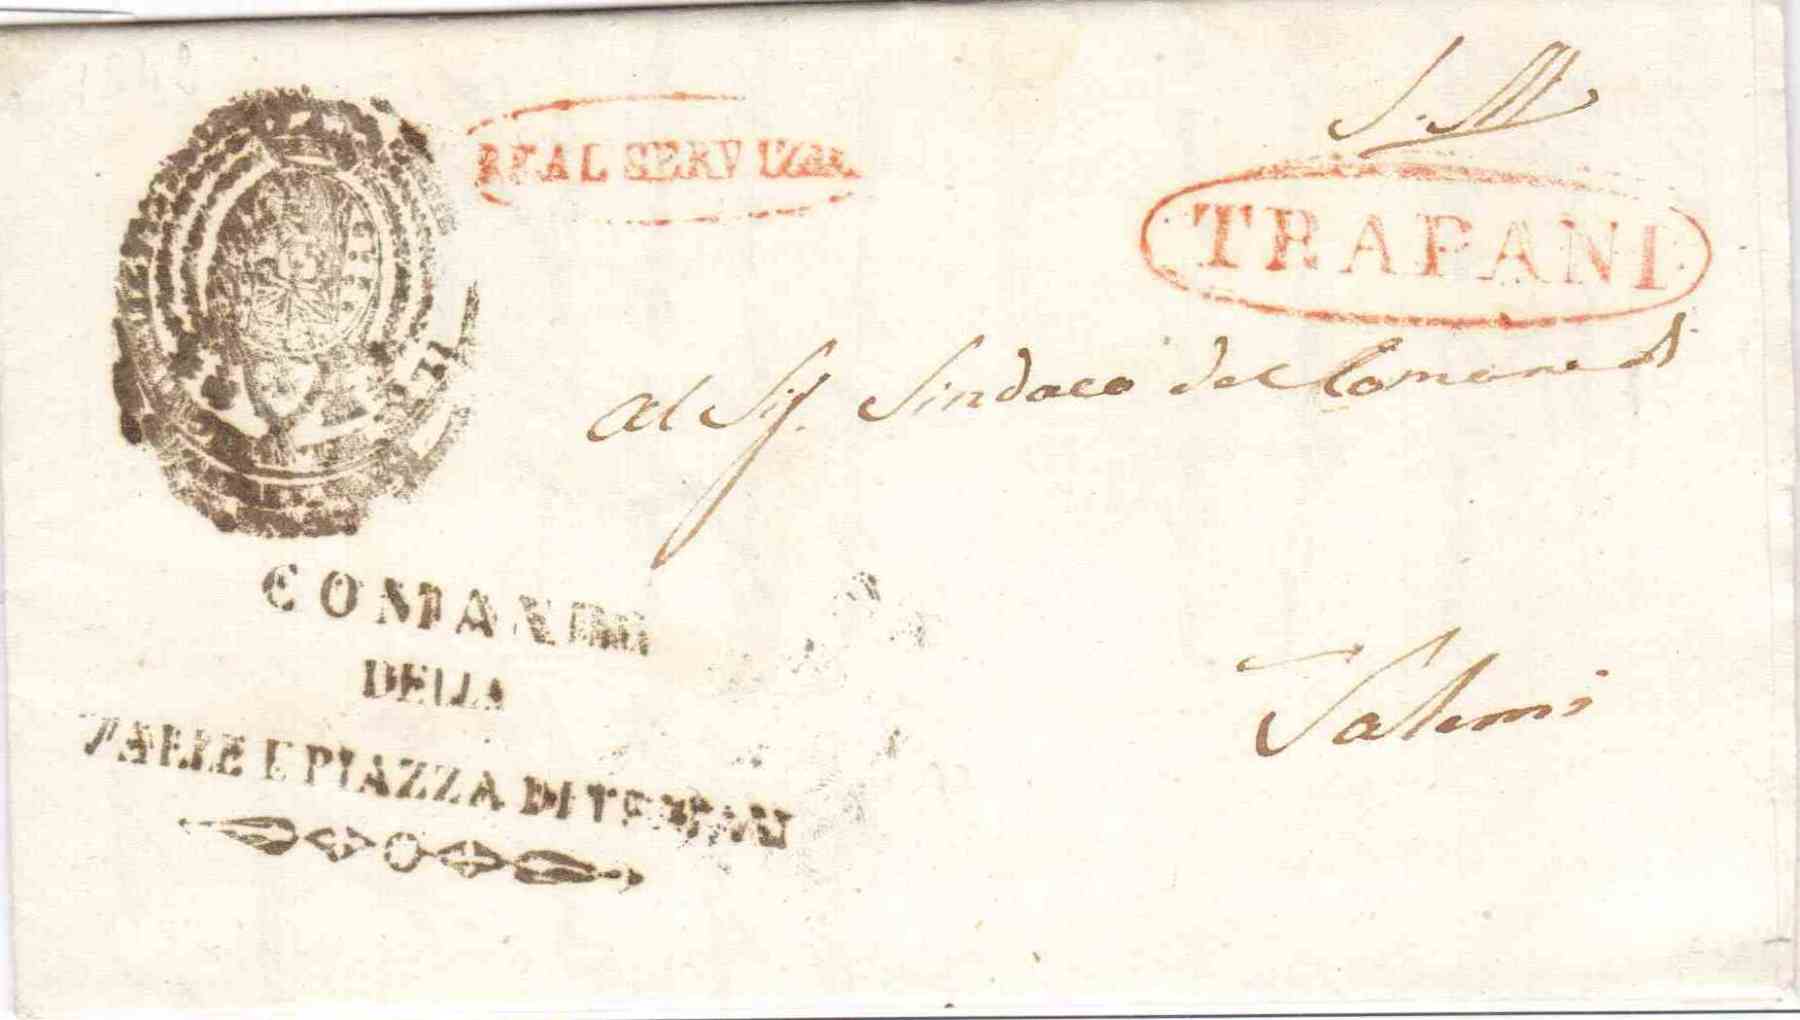 REAL SERVIZIO
S. M.
TRAPANI
Al Sig. Sindaco del Comune di
Salemi
COMANDO
DELLA
VALLE E PIAZZA DI TRAPANI